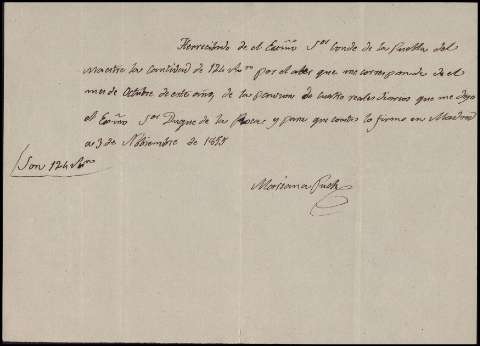 He rrecibido de el Exmõ Sor Conde de la Puebla del
Maestre la Cantidad de 124 Rson por el aber que me corresponde de el
mes de Octubre de este año, de la pension de cuatro reales diarios que me dejo
el Exmõ Sor Duque de la Roca y para que conste lo firmo en Madrid
a 3 de Noviembre de
Son 124 Rson
Mariana